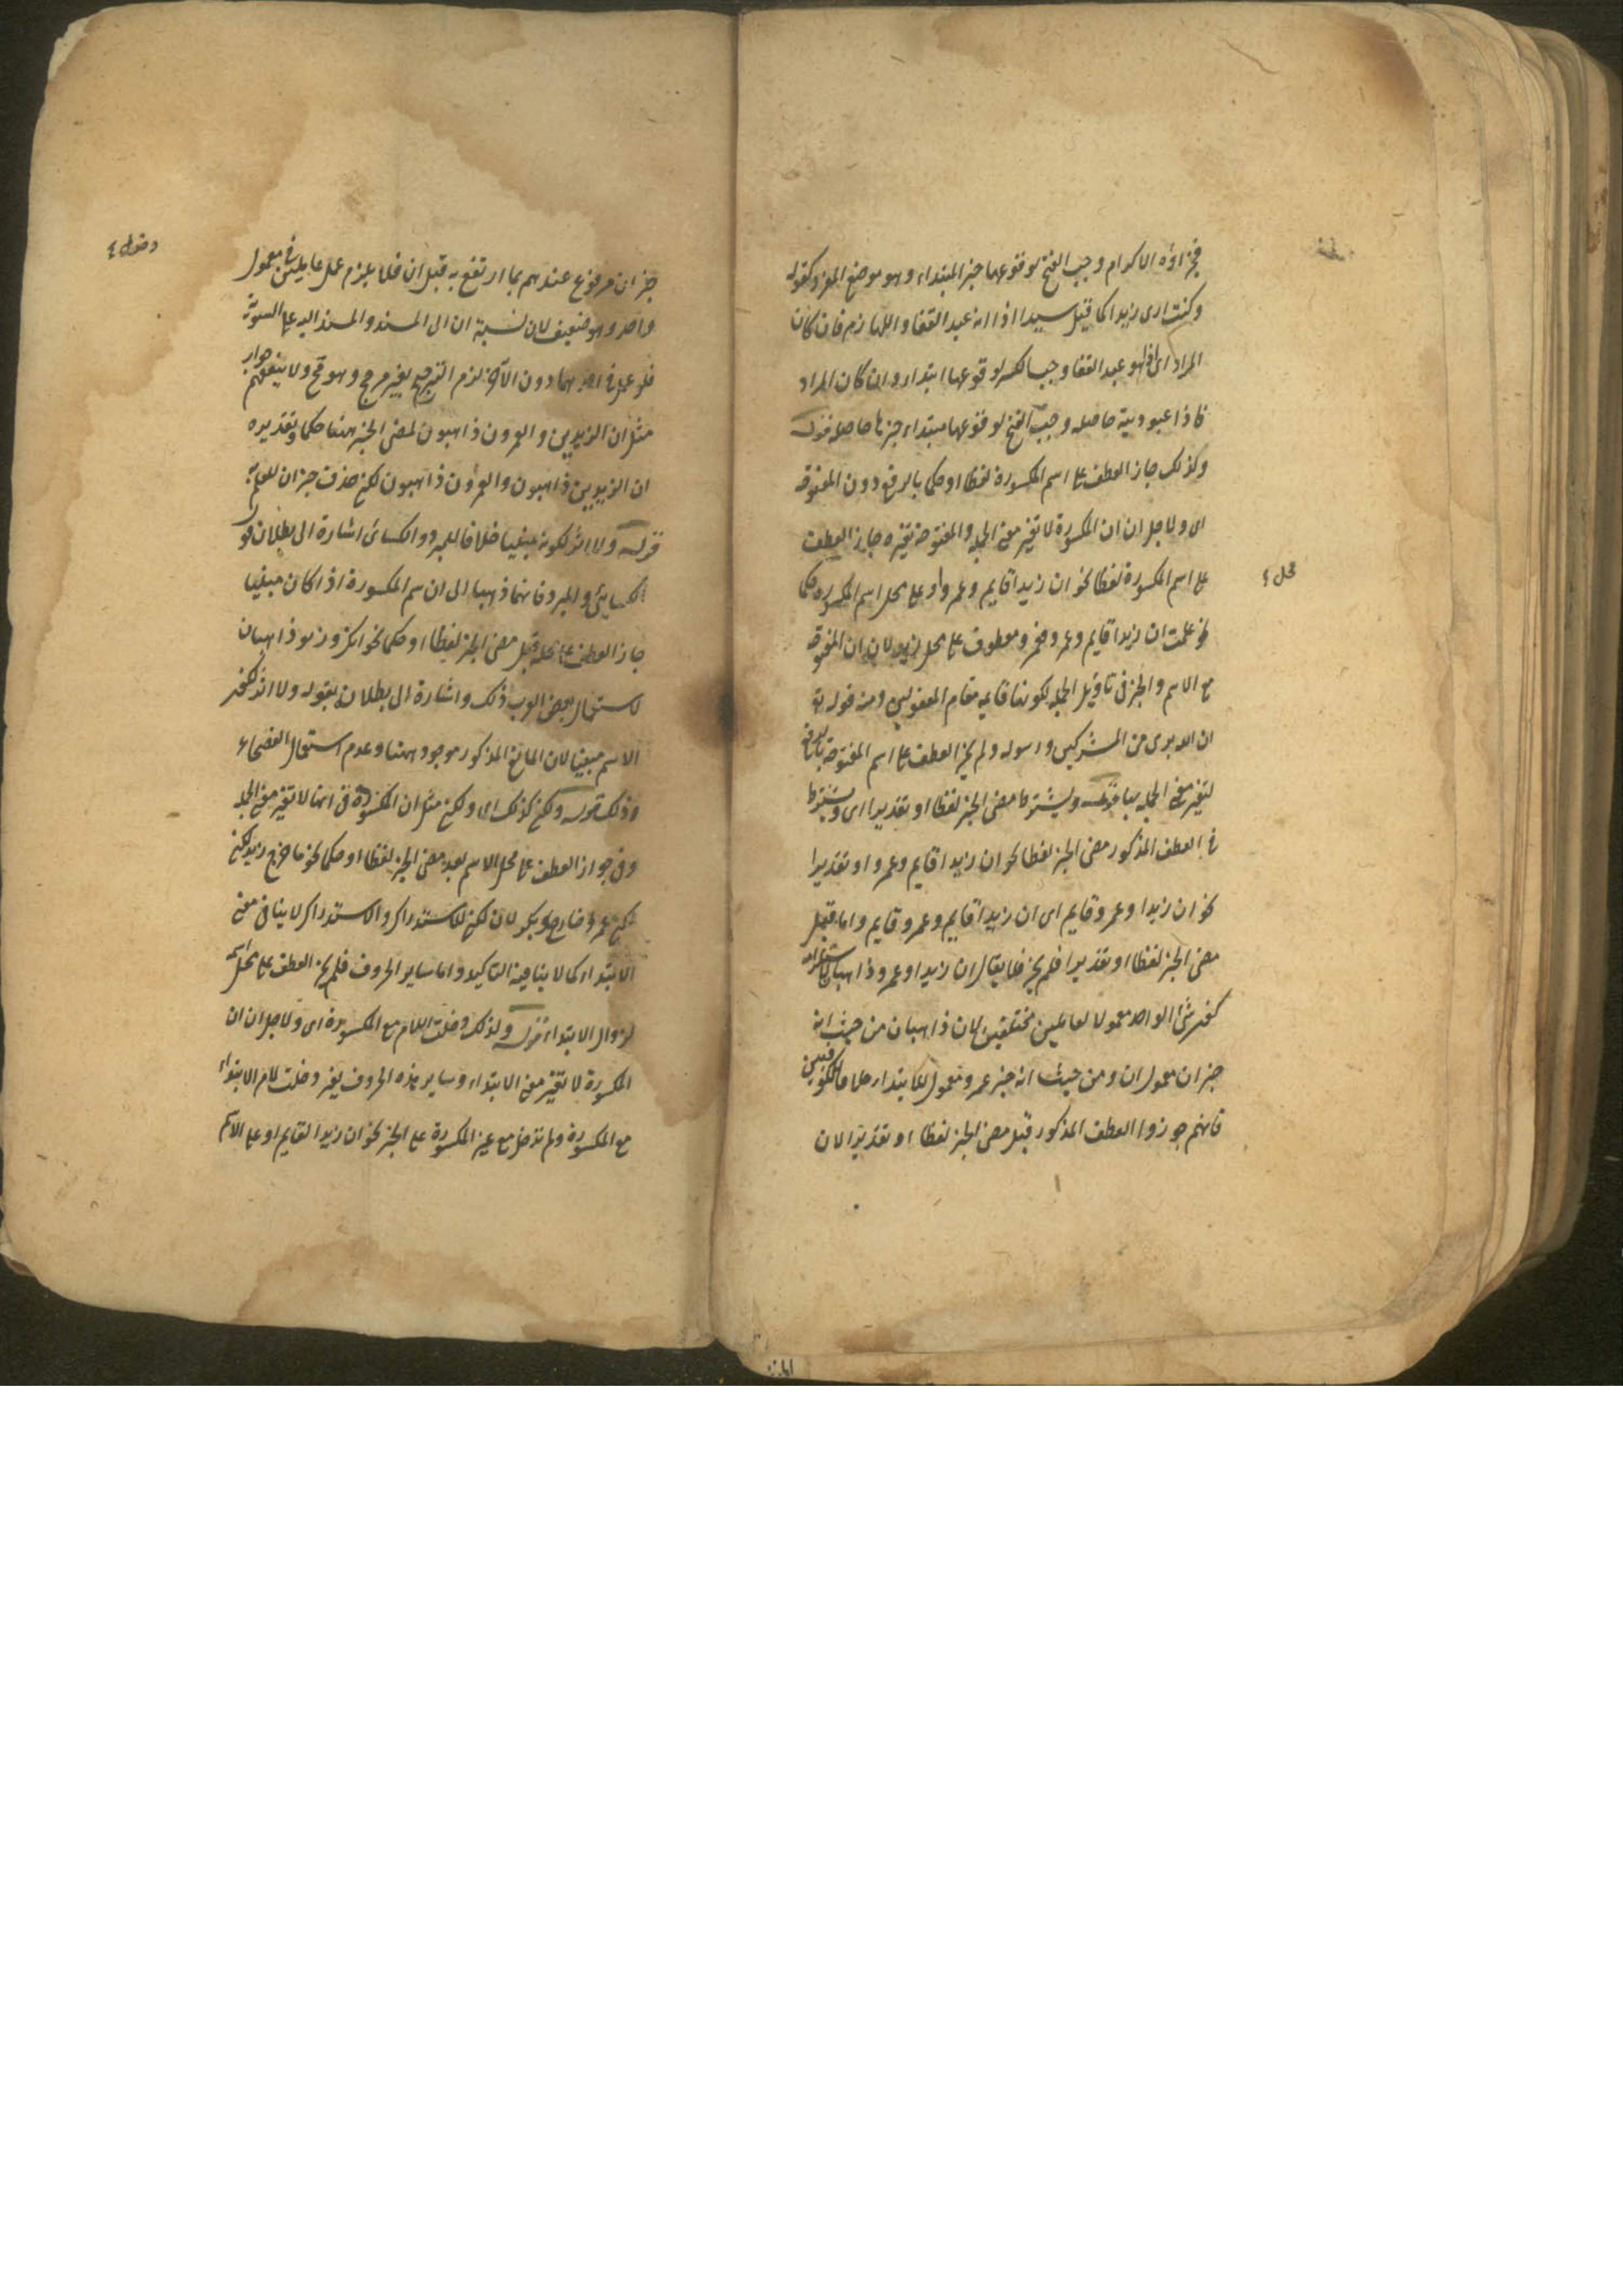 فجزاؤه الاكرام وجب الفتح لوقوعها خبر المبتداء وهو موضع المفرد كقوله
وكنت ارى زيدا كما قيل سيدا اذا انه عبد القفا واللهازم فان كان
المراد اى فاذا هو عبد القفا وجب الكسر لوقوعها ابتداء وان كان المراد
فاذا عبوديته حاصله وجب الفتح لوقوعها مبتداء خبرها حاصله قوله
وكذلك جاز العطف على اسم المكسورة لفظا او حكما بالرفع دون المفتوحة
اى ولاجل ان ان المكسورة لا تغير معنى الجملة والمفتوحة تغيره جاز العطف
على اسم المكسورة لفظا نحو ان زيدا قايم وعمرو او على محل اسم المكسورة حكما
محل
نحو علمت ان زيدا قايم وعمرو فعمرو معطوف على محل زيد لان ان المفتوحة
مع الاسم والخبر فى تاويل الجملة لكونها قايمة مقام المفعولين ومنه قوله تع
ان الله برى من المشركين ورسوله ولم يجز العطف على اسم المفتوحة بالرفع
لتغير معنى الجملة بها قوله ويشترط مضى الخبر لفظا او تقديرا اى ويشترط
فى العطف المذكور مضى الخبر لفظا نحو ان زيدا قايم وعمرو او تقديرا
نحو ان زيدا وعمرو قايم اى ان زيدا قايم وعمرو قايم واما قبل
مضى الخبر لفظا او تقديرا فلم يجز فلا يقال ان زيدا وعمرو ذاهبان لاستلزامه
كون شئ الواحد معمولا لعاملين مختلفين لان ذاهبان من حيث انه
خبر ان معمول ان ومن حيث انه خبر عمرو معمول للابتداء خلافا للكوفيين
فانهم جوزوا العطف المذكور قبل مضى الخبر لفظا او تقديرا لان
خبر ان مرفوع عندهم بما ارتفع به قبل ان فلا يلزم عمل عاملين فى معمول
دخول
واحد وهو ضعيف لان نسبة ان الى المسند والمسند اليه على السوية
فلو عمل فى احدهما دون الآخر لزم الترجيح بغير مرجح وهو قبح ولا ينفعهم جواز
مثل ان الزيدين والعمرون ذاهبون لمضى الخبر ههنا حكما وتقديره
ان الزيدين ذاهبون والعمرون ذاهبون لكن حذف خبر ان للعلم به
قوله ولا اثر لكونه مبنيا خلافا للمبرد والكسائى اشارة الى بطلان قول
الكسائى والمبرد فانهما ذهبا الى ان اسم المكسورة اذا كان مبنيا
جاز العطف على محله قبل مضى الخبر لفظا او حكما نحو انك وزيد ذاهبان
لاستعمال بعض العرب ذلك واشارة الى بطلانه بقوله ولا اثر لكون
الاسم مبنيا لان المانع المذكور موجود ههنا وعدم استعمال الفصحاء
وذلك قوله ولكن كذلك اى ولكن مثل ان المكسورة فى انها لا تغير معنى الجملة
وفى جواز العطف على محل الاسم بعد مضى الخبر لفظا او حكما نحو ما خرج زيد لكن
لكن عمرو خارج وبكر لان لكن للاستدراك والاستدراك لا ينافى معنى
الابتداء كما لا ينافيه التاكيد واما ساير الحروف فلم يجز العطف على محل اسمه
لزوال الابتداء قوله ولذلك دخلت اللام مع المكسورة اى ولاجل ان ان
المكسورة لا تغير معنى الابتداء وساير هذه الحروف يغير دخلت لام الابتداء
مع المكسورة ولم تدخل مع غير المكسورة على الخبر نحو ان زيدا لقايم او على الاسم